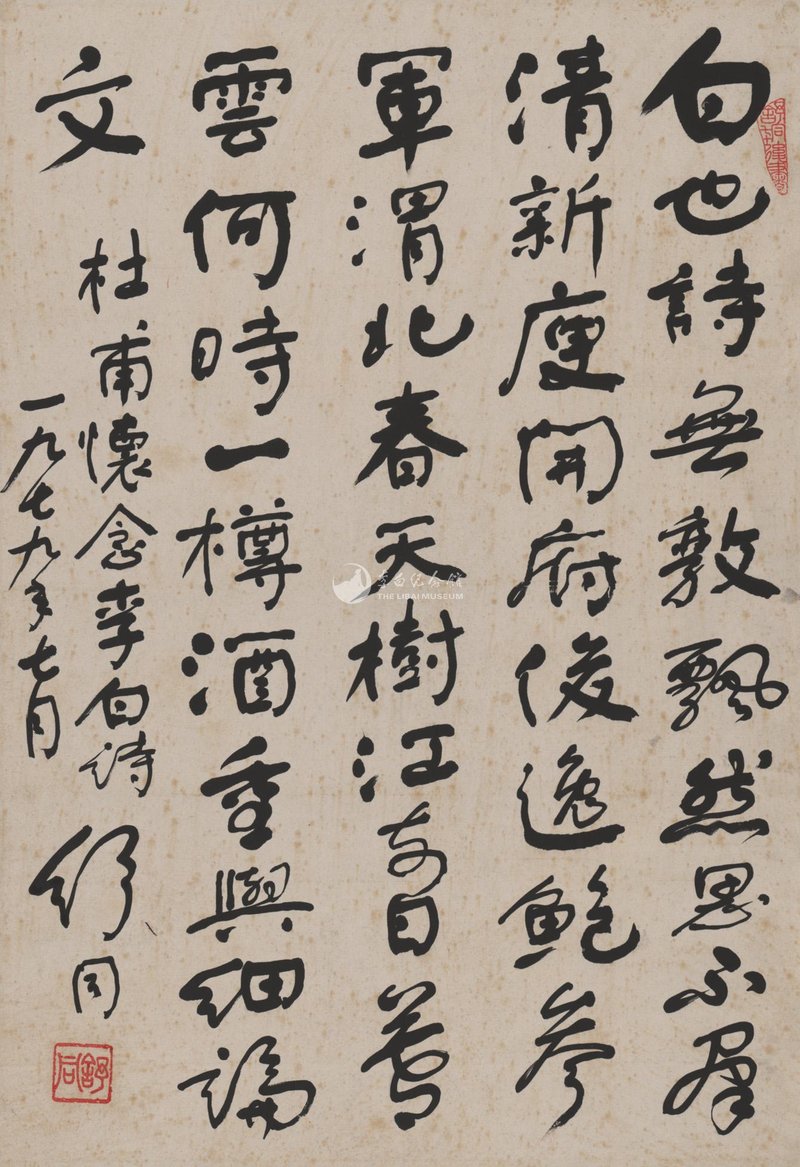 白也詩無敵飄然思不羣
清新庾開府俊逸鮑參
軍渭北春天樹江東日暮
雲何時一樽酒重與細論
文
杜甫懷念李白詩
一九七九年七月
舒同
舒同
李白纪念馆
THE LIBAI MUSEUM